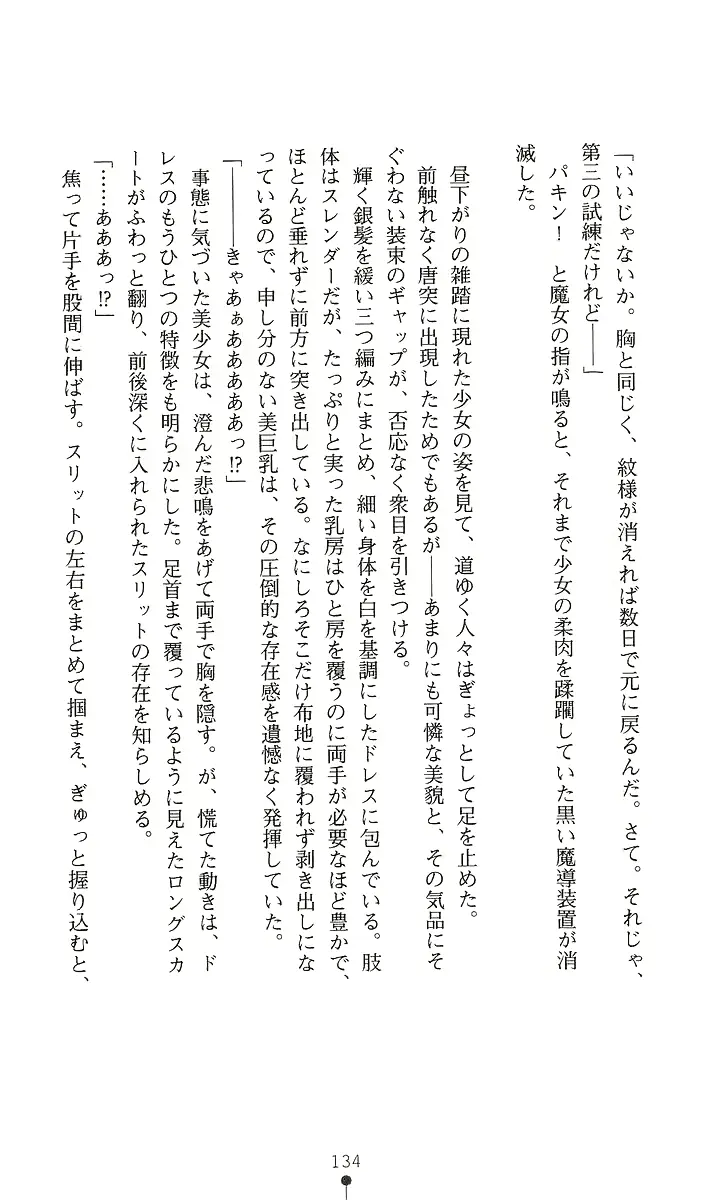 「いいじゃないか。胸と同じく、紋様が消えれば数日で元に戻るんだ。さて。それじゃ、
第三の試練だけれど――」
　パキン！　と魔女の指が鳴ると、それまで少女の柔肉を蹂躙していた黒い魔導装置が消
滅した。
　昼下がりの雑踏に現れた少女の姿を見て、道ゆく人々はぎょっとして足を止めた。
　前触れなく唐突に出現したためでもあるが――あまりにも可憐な美貌と、その気品にそ
ぐわない装束のギャップが、否応なく衆目を引きつける。
　輝く銀髪を緩い三つ編みにまとめ、細い身体を白を基調にしたドレスに包んでいる。肢
体はスレンダーだが、たっぷりと実った乳房はひと房を覆うのに両手が必要なほど豊かで、
ほとんど垂れずに前方に突き出している。なにしろそこだけ布地に覆われず剥き出しにな
っているので、申し分のない美巨乳は、その圧倒的な存在感を遺憾なく発揮していた。
「――――きゃあぁああああああっ!?」
　事態に気づいた美少女は、澄んだ悲鳴をあげて両手で胸を隠す。が、慌てた動きは、ド
レスのもうひとつの特徴をも明らかにした。足首まで覆っているように見えたロングスカ
ートがふわっと翻り、前後深くに入れられたスリットの存在を知らしめる。
「……あああっ!?」
　焦って片手を股間に伸ばす。スリットの左右をまとめて掴まえ、ぎゅっと握り込むと、
134